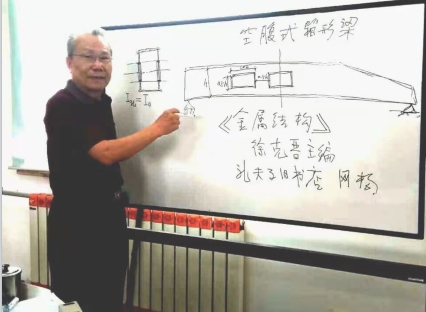 空腹式箱形梁
《金属结构》
徐克晋主编
孔夫子旧书店 网购